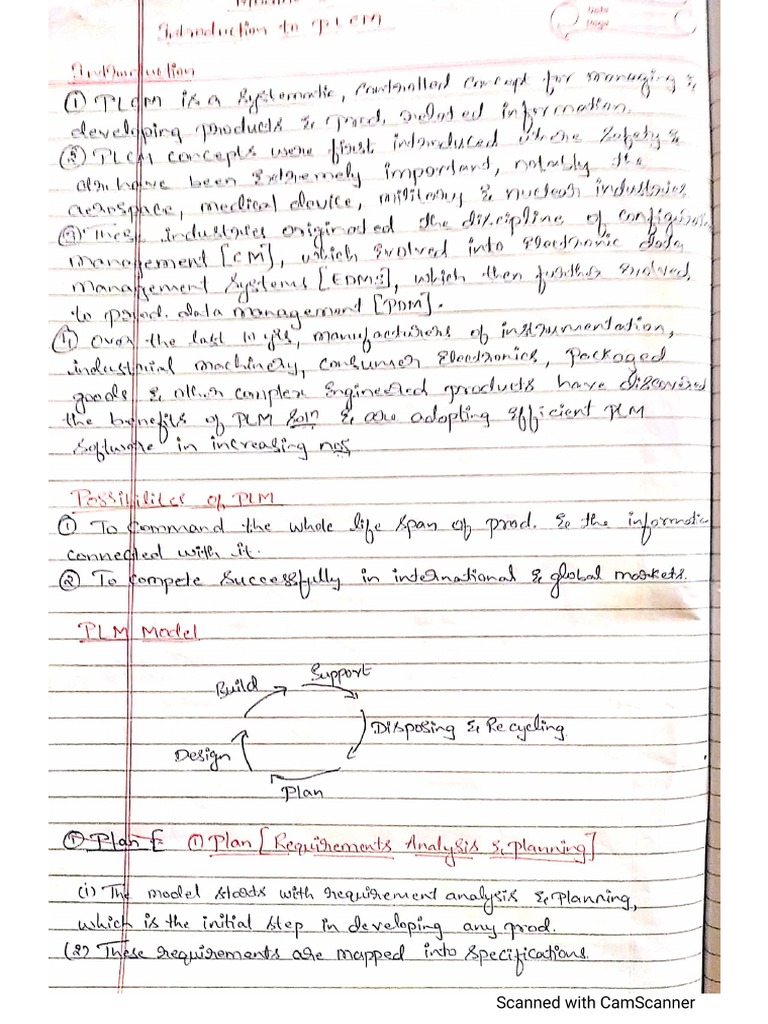 Introduction to PLCM
Date
Page
Introduction
① PLCM is a systematic, controlled concept for managing &
developing products & prod. related information.
② PLCM concepts were first introduced where safety &
have been extremely important, notably the
aerospace, medical device, military & nuclear industries
③ These industries originated the discipline of configuration
management [CM], which evolved into electronic data
management systems [EDMS], which then further evolved
to prod. data management [PDM].
④ Over the last 10 yrs, manufacturers of instrumentation,
industrial machinery, consumer electronics, packaged
goods & other complex engineered products have discovered
the benefits of PLM soln & are adopting efficient PLM
software in increasing nos
Possibilites of PLM
① To command the whole life span of prod. & the informatic
connected with it.
② To compete successfully in international & global markets.
PLM Model
Support
Build
Disposing & Recycling
Design
Plan
① Plan [ ① Plan [Requirements Analysis & planning]
(i) The model starts with requirement analysis & Planning,
which is the initial step in developing any prod.
(2) These requirements are mapped into specifications.
Scanned with CamScanner